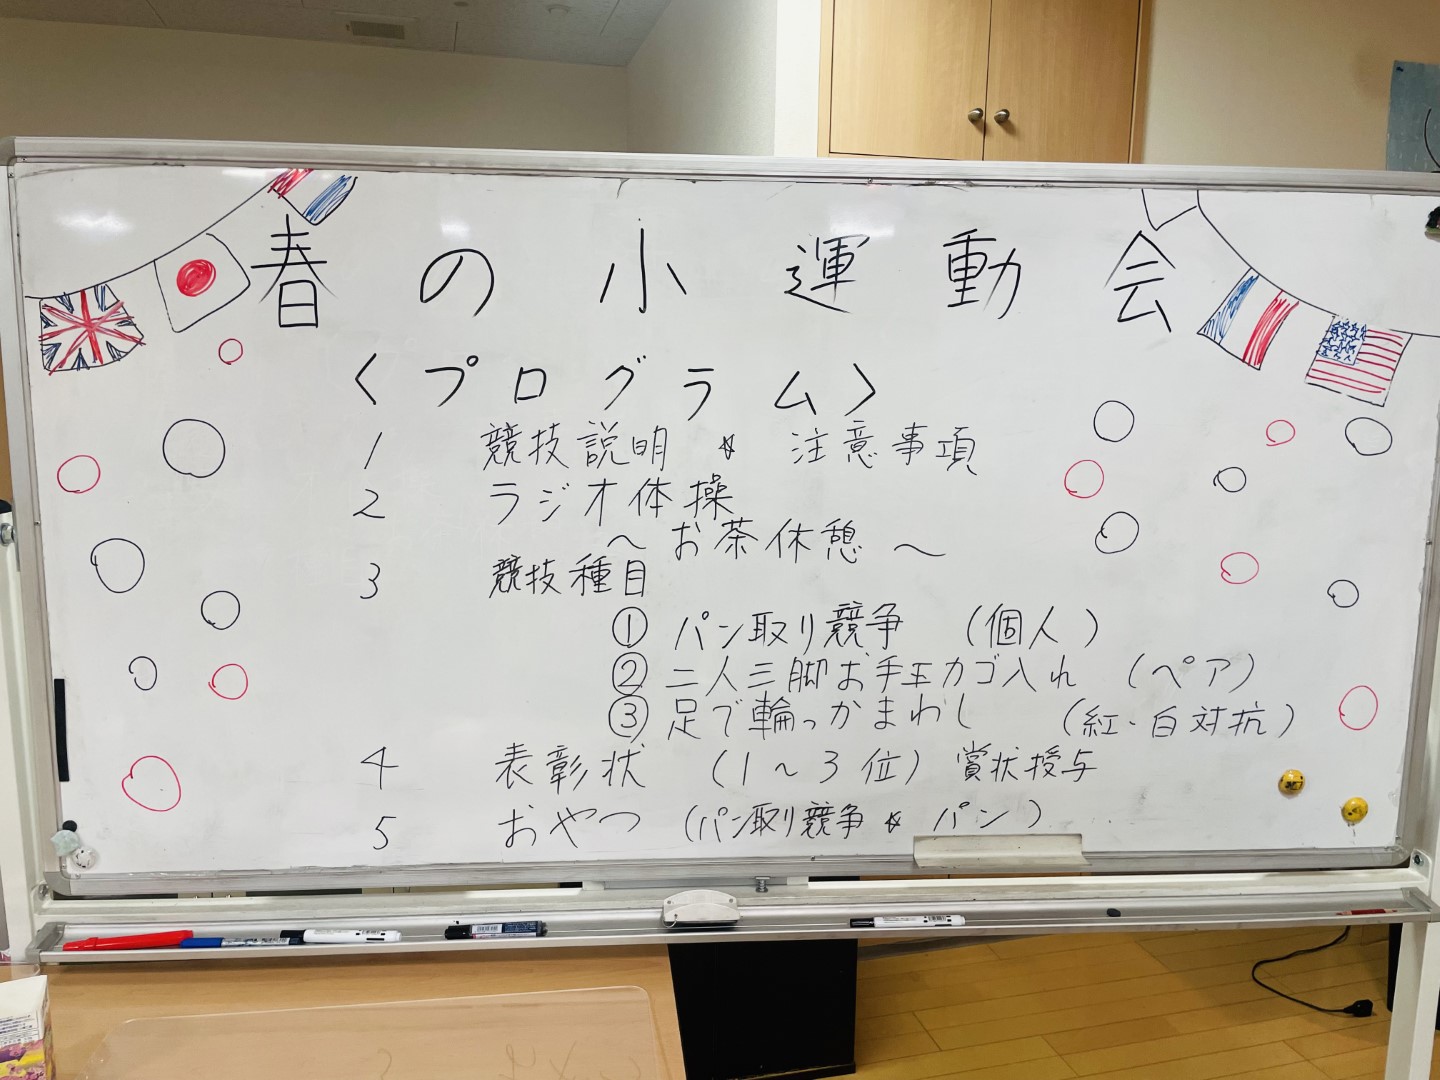 春の小運動会
〈プログラム〉
1 競技説明 ☆ 注意事項
2 ラジオ体操
～お茶休憩～
3 競技種目
① パン取り競争 (個人)
② 二人三脚お手玉カゴ入れ (ペア)
③ 足で輪っかまわし (紅・白対抗)
4 表彰状 (1～3位) 賞状授与
5 おやつ (パン取り競争 ☆ パン)